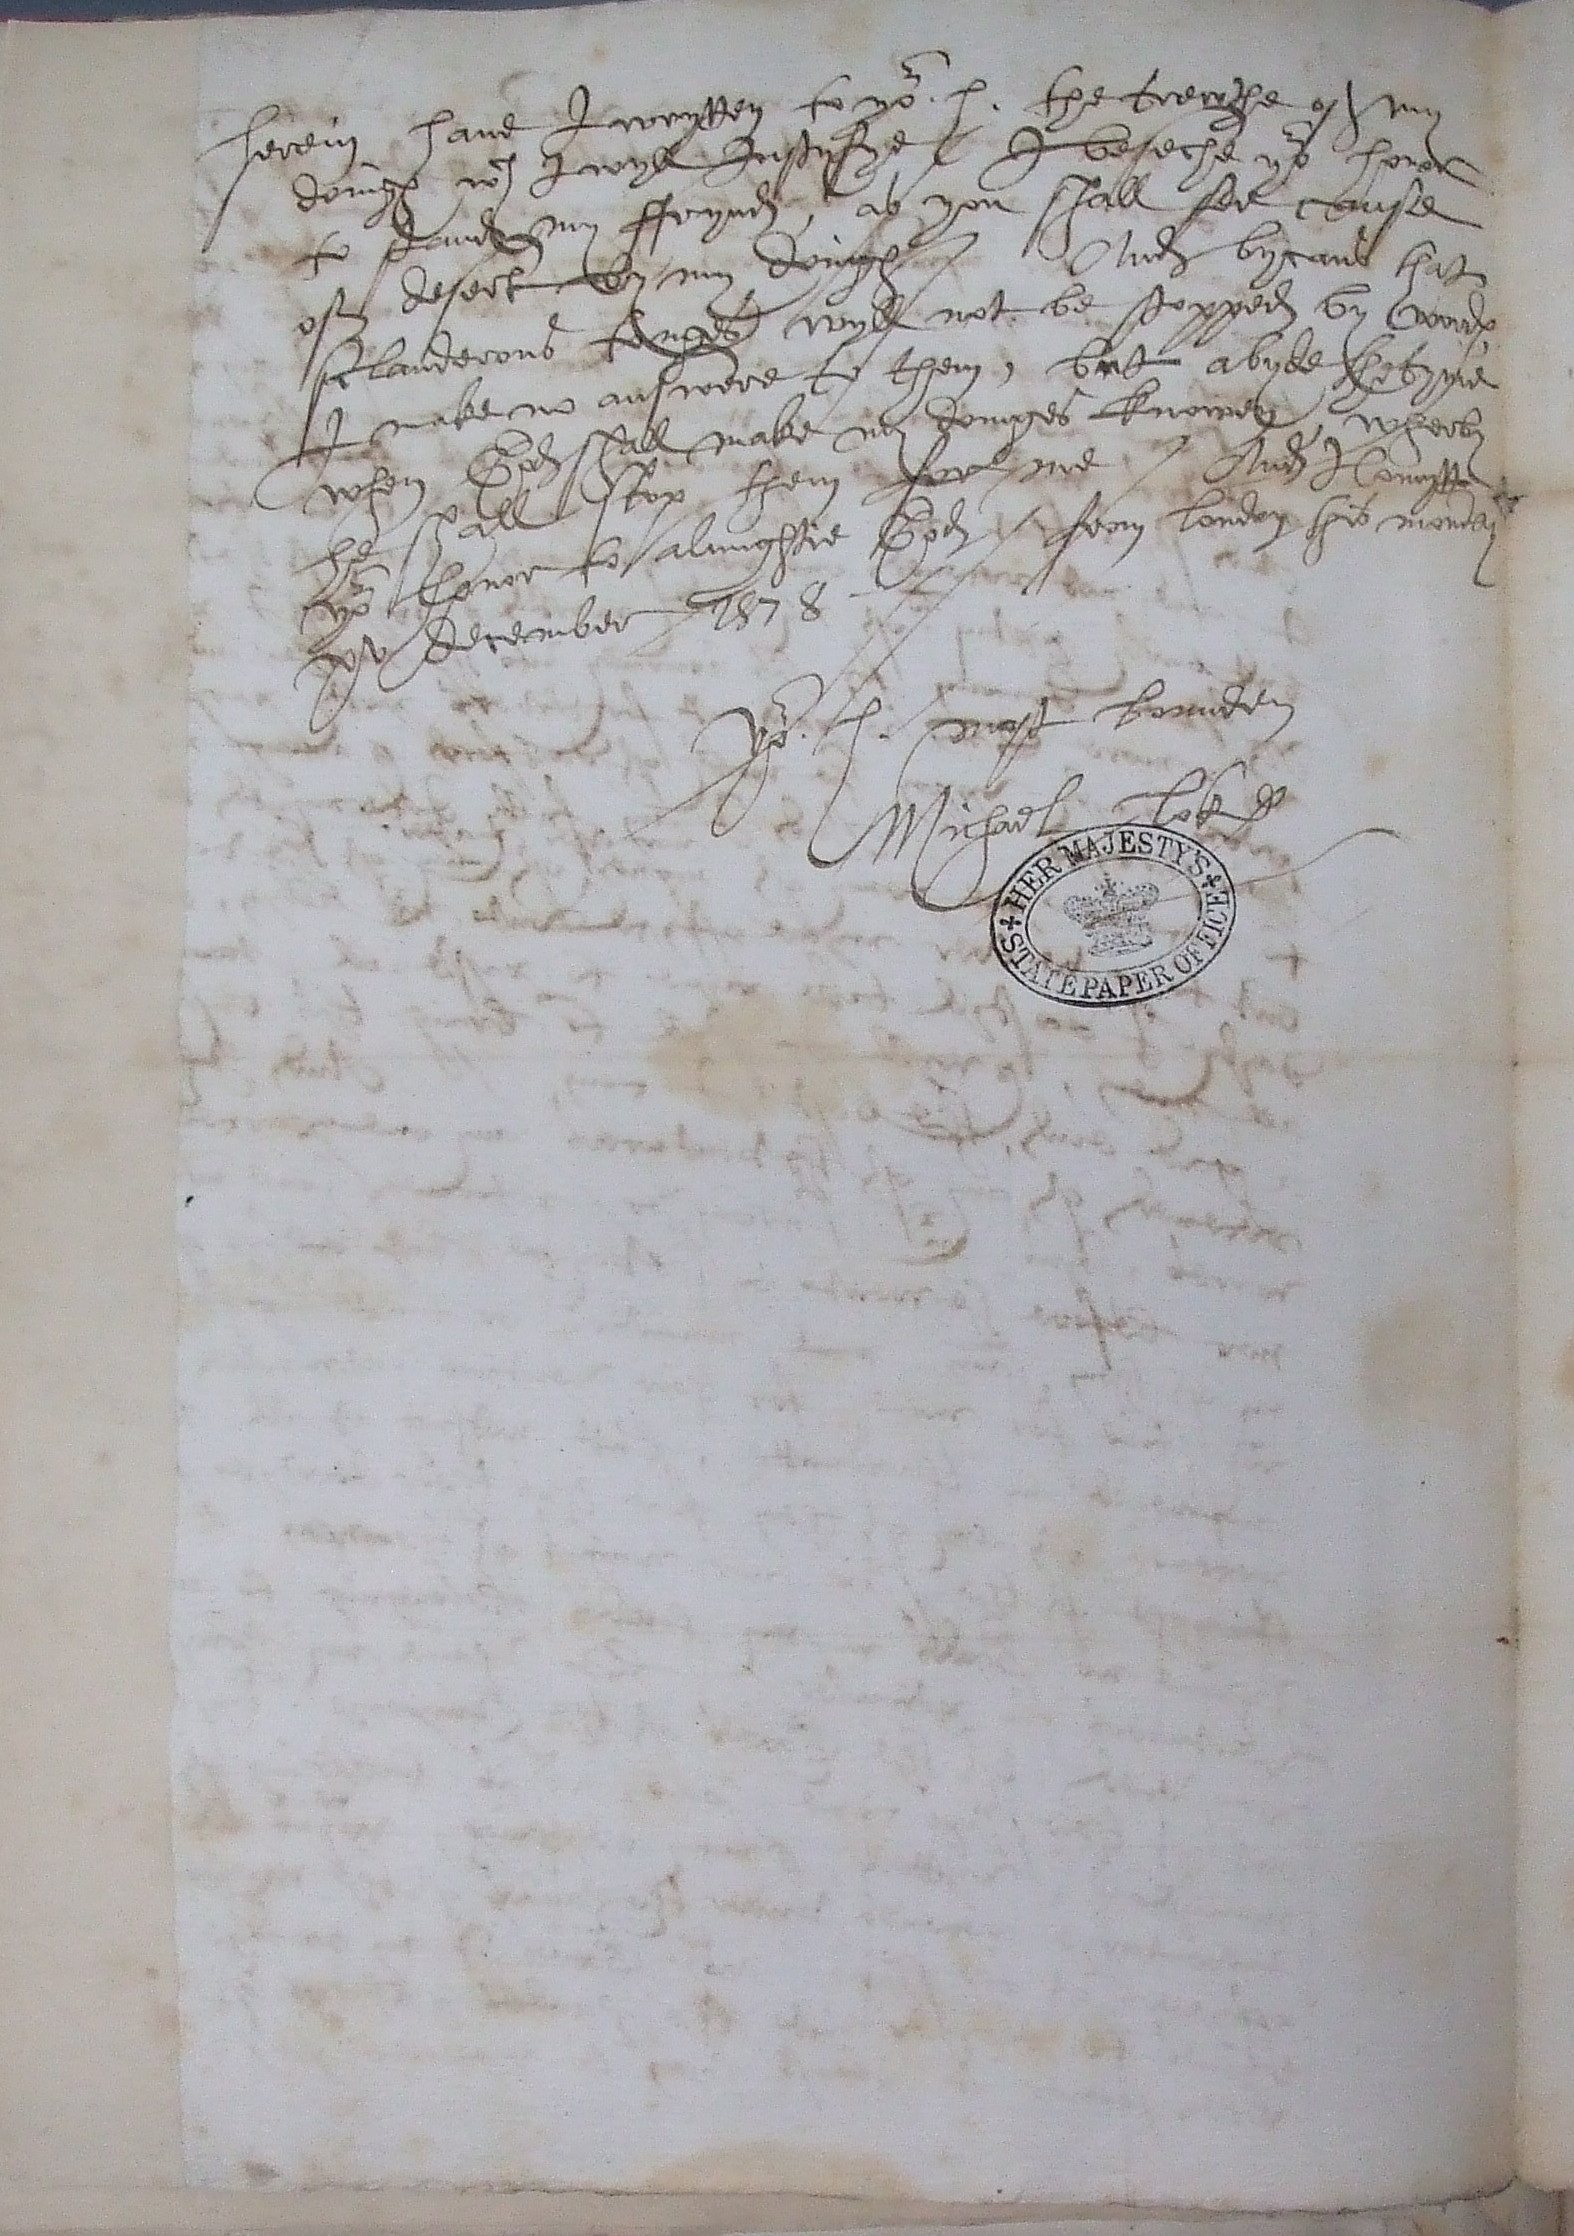 herein have I wrytten to yor. h. the trewthe of my
doings wch I wyll Justyfye / I beseche yor honor
to stand my ffrynd, as you shall see cause
of desert by my doings / And bycaus that
sclanderous tonges wyll not be stopped by words,
I make no answere to them, but abyde the tyme
when God shall make my doinges knowen, wherby
he shall stop them for me / And I Comytt
yor honor to almightie God / from london this monday
xv december 1578
yor. h. most bounden
Michael lok
HER MAJESTY'S STATE PAPER OFFICE